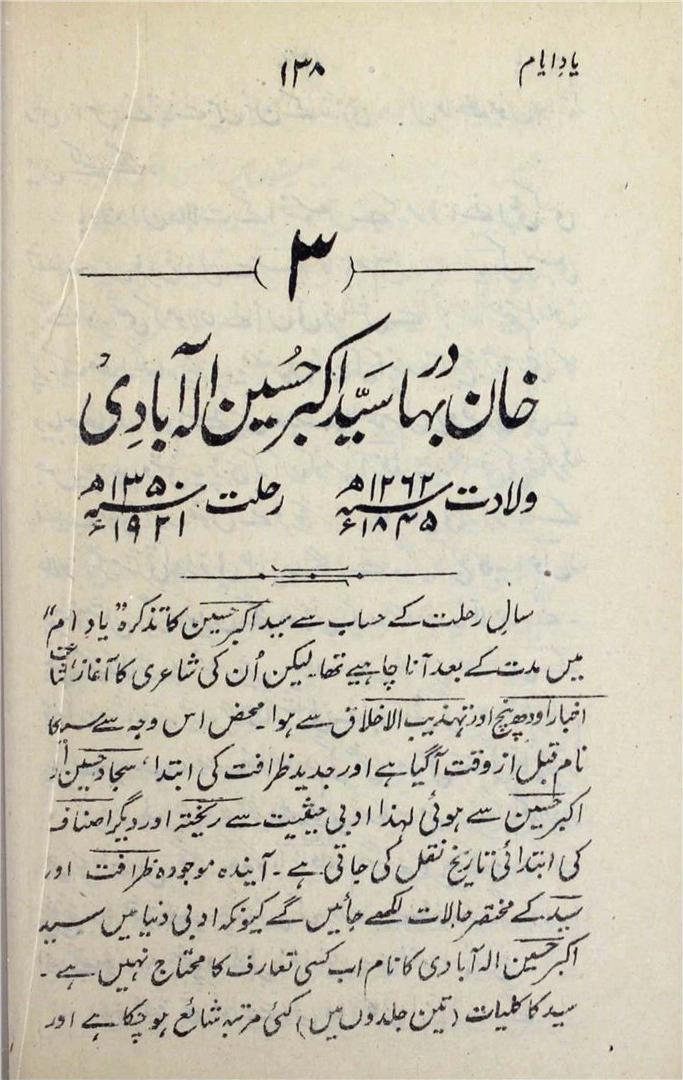 یادِ ایام
۱۳۸
۳
خان بہادر سیّد اکبر حُسین الہ آبادی
ولادت ۱۲۶۲ھ ۱۸۴۵ء رحلت ۱۳۵۰ھ ۱۹۲۱ء
سالِ رحلت کے حساب سے سید اکبر حسین کا تذکرہ "یادِ ایام"
میں مدت کے بعد آنا چاہیے تھا۔ لیکن اُن کی شاعری کا آغاز اشاعت
اخبار اودھ پنچ اور تہذیب الاخلاق سے ہوا۔ محض اس وجہ سے سید کا
نام قبل از وقت آگیا ہے اور جدید ظرافت کی ابتدا، سجاد حسین اور
اکبر حسین سے ہوئی لہذا ادبی حیثیت سے ریختہ اور دیگر اصناف
کی ابتدائی تاریخ نقل کی جاتی ہے۔ آیندہ موجودہ ظرافت اور
سید کے مختصر حالات لکھے جائیں گے کیونکہ ادبی دنیا میں سید
اکبر حسین الہ آبادی کا نام اب کسی تعارف کا محتاج نہیں ہے۔
سید کا کلیات (تین جلدوں میں) کئی مرتبہ شائع ہو چکا ہے اور